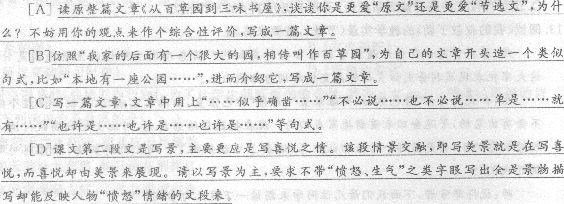 [A] 读原整篇文章《从百草园到三味书屋》,谈谈你是更爱“原文”还是更爱“节选文”,为什
么?不妨用你的观点来作个综合性评价,写成一篇文章。
[B]仿照“我家的后面有一个很大的园,相传叫作百草园”,为自己的文章开头造一个类似
句式,比如“本地有一座公园……”,进而介绍它,写成一篇文章。
[C 写一篇文章,文章中用上“……似乎确凿……”“不必说……也不必说……单是……就
有……”“也许是……也许是……也许是……”等句式。
[D]课文第二段文是写景,主要更应是写喜悦之情。该段情景交融,即写美景就是在写喜
悦,而喜悦却由美景来展现。请以写景为主,要求不带“愤怒、生气”之类字眼写出全是景物描
写却能反映人物“愤怒”情绪的文段来。